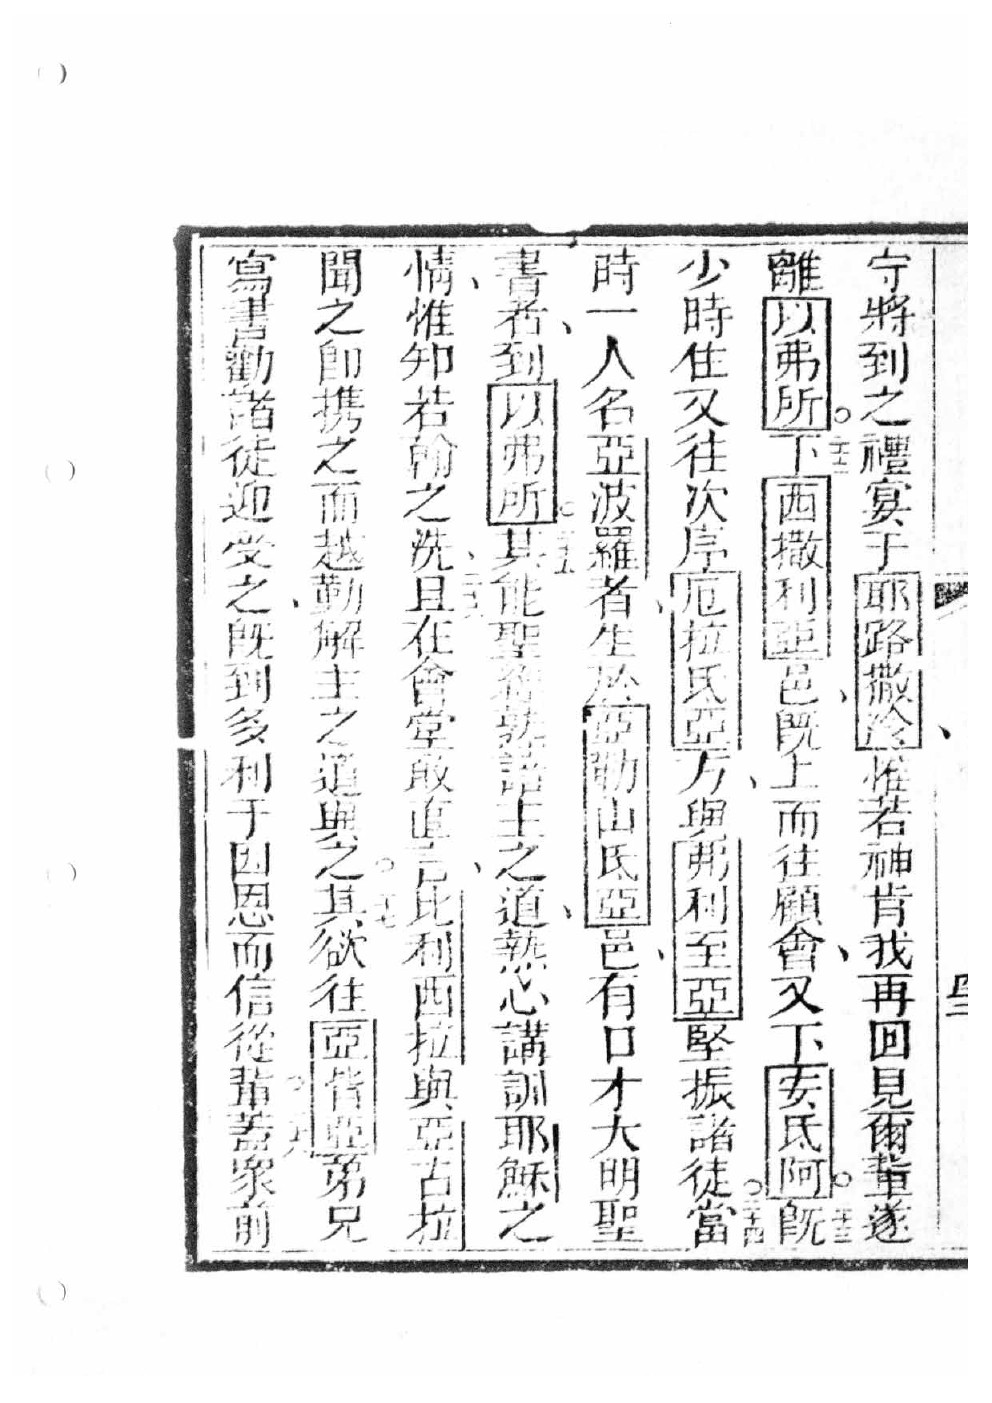 守將到之禮宴于耶路撒冷惟若神肯我再回見爾輩遂
離以弗所。二十二下西撒利亞邑、既上而往顧會、又下安氐阿。二十三既
少時住又往次序厄拉氐亞方、與弗利至亞堅振諸徒。二十四當
時一人名亞波羅者、生於亞勒山氐亞邑、有口才大明聖
書者、到以弗所。二十五其能聖經熟諳主之道、熱心講訓耶穌之
情、惟知若翰之洗、二十六且在會堂敢直言、比利西拉與亞古拉
聞之即携之而越勤解主之道與之。二十七其欲往亞皆亞弟兄
寫書勸諸徒迎受之、既到多利于因恩而信從輩。二十八蓋眾前
四三